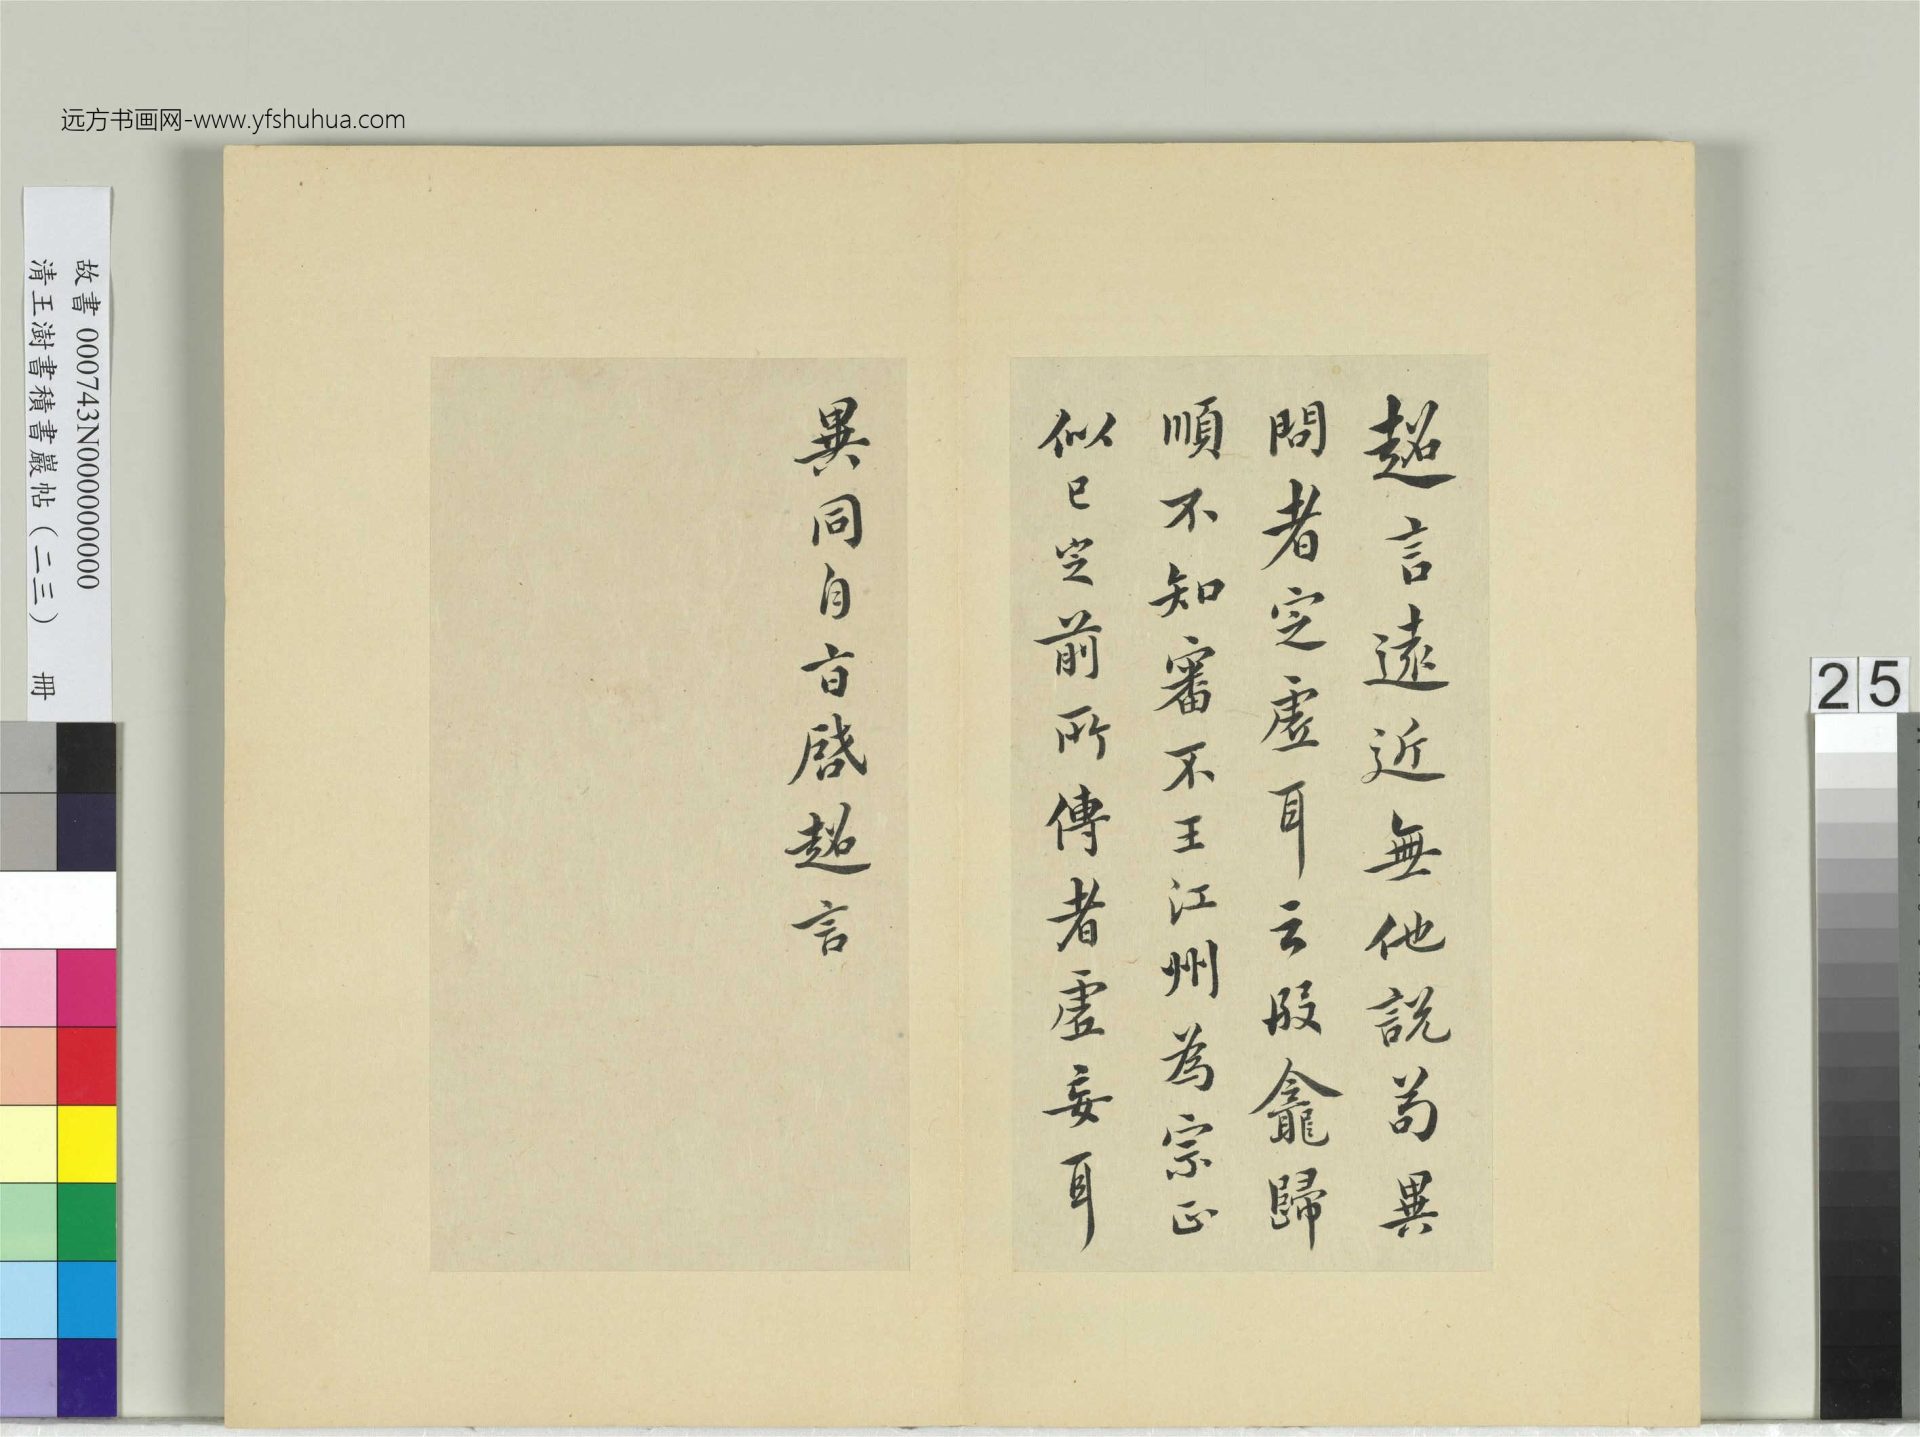 远方书画网-www.yfshuhua.com
故書 000743N000000000
清王澍書積書巖帖(二三) 冊
25
超言遠近無他說苟異
問者定虛耳云段龕歸
順不知審不王江州為宗正
似已定前所傳者虛妄耳
異同自旨啓超言